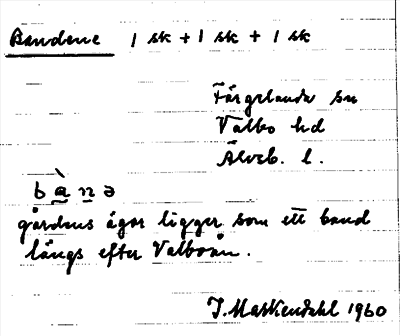 Bandene 1 sk + 1 sk + 1 sk
Färgelanda sn
Valbo hd
Älvsb. l.
bànə
gårdens ägor ligger som ett band
längs efter Valboån.
J. Markendahl 1960